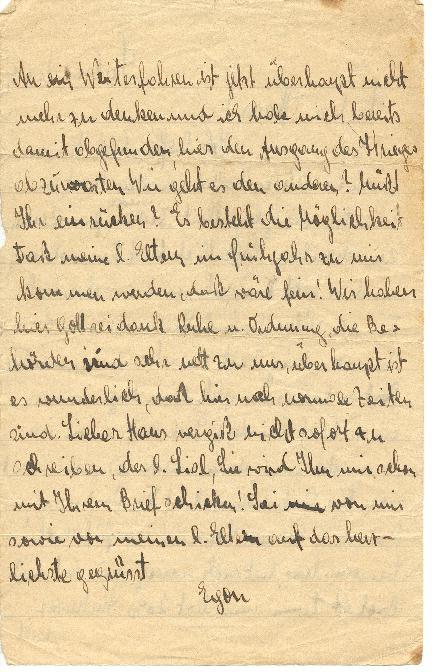 An ein Weiterfahren ist jetzt überhaupt nicht
mehr zu denken und ich habe mich bereits
damit abgefunden, hier den Ausgang des Krieges
abzuwarten. Wie geht es den anderen? Müßt
Ihr einrücken? Es besteht die Möglichkeit
daß meine l. Eltern im Frühjahr zu mir
kommen werden, daß wäre fein! Wir haben
hier Gott sei dank Ruhe u. Ordnung, die Be=
hörden sind sehr nett zu uns, überhaupt ist
es wunderlich, daß hier noch normale Zeiten
sind. Lieber Hans vergiß nicht sofort zu
schreiben, der l. Liesl, Sie wird Ihn mir schon
mit Ihrem Brief schicken! Sei von mir
sowie von meinen l. Eltern auf das herz-
lichste gegrüsst
Egon